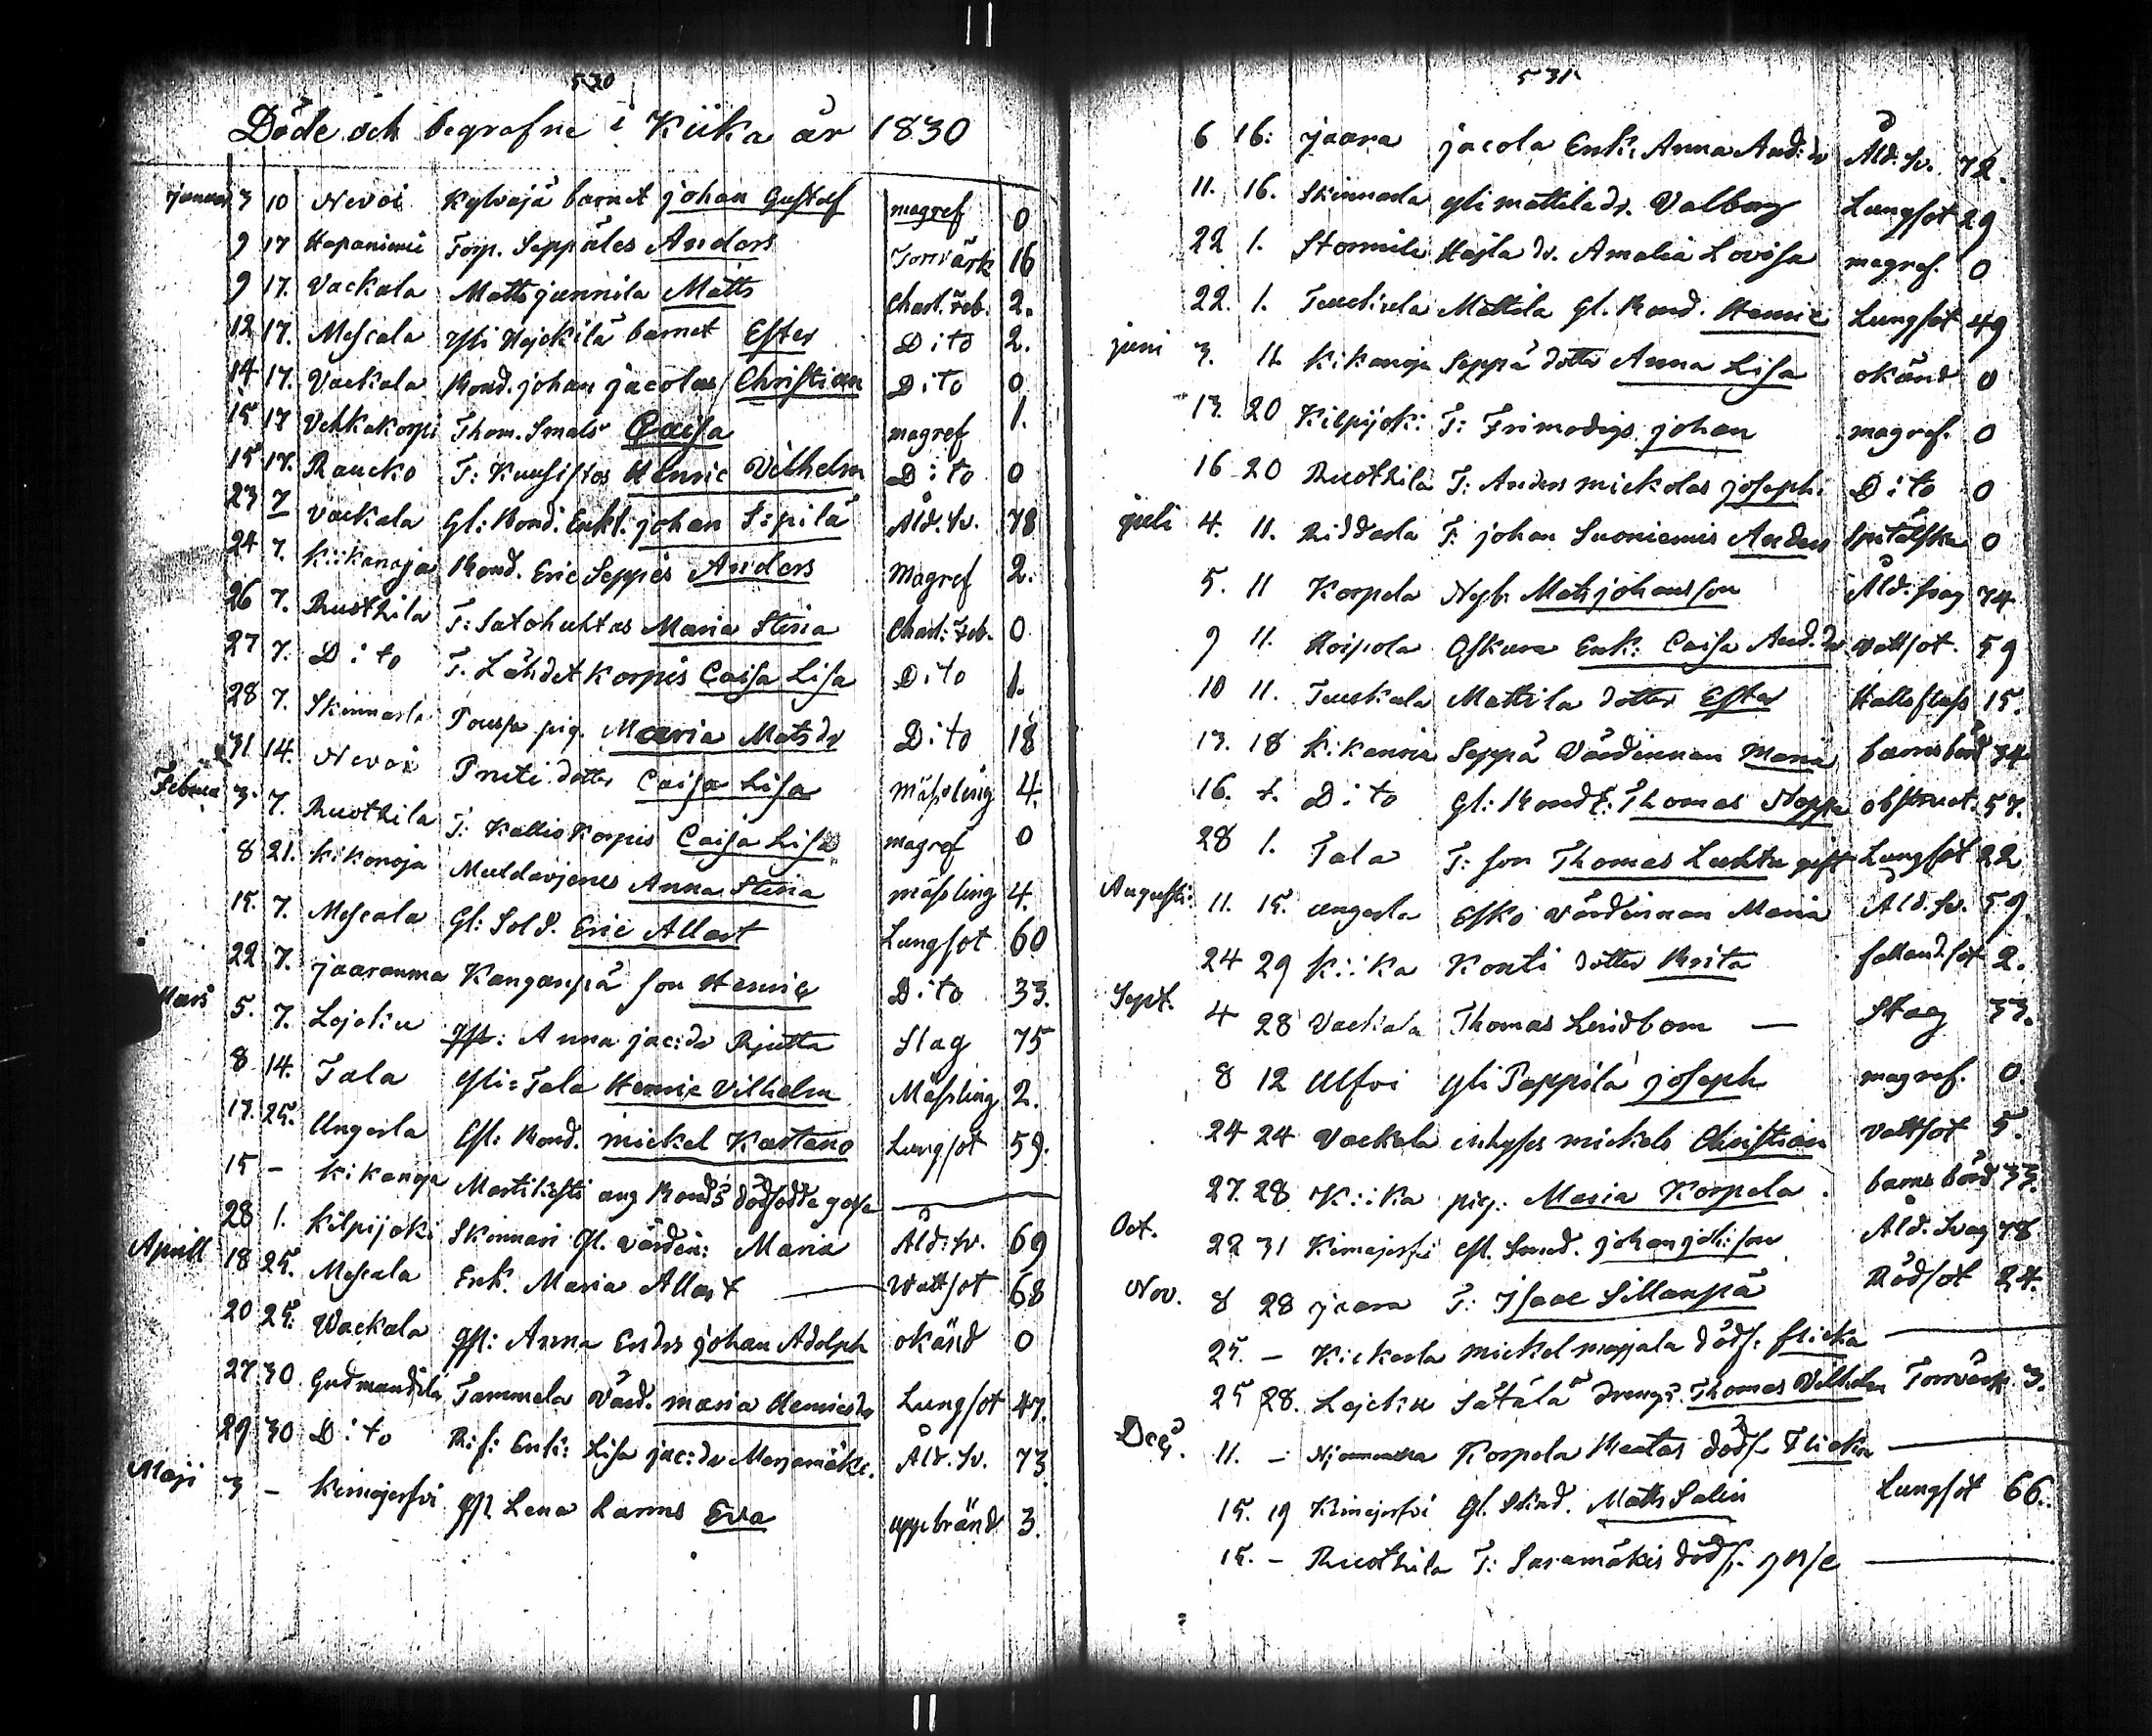 530
Döde och begrafne i Kiika år 1830
Januari 3 10 Nevoi Kylväjä barnet johan Gustaf magref 0
9 17 Hapaniemi Torp. Seppäles Anders Torrvärk 16
9 17. Vackala Matts junnila Matts Charl. Feb. 2.
12 17. Mescala yli Hejckilä barnet Ester Dito 2.
14 17. Vackala Bond. johan jacolas Christian Dito 0
15 17 Vehkakorpi Thom. Smals Caisa magref 1.
15 17. Raucko T: Kuusistos Henric Vilhelm Dito 0
23 7 Vackala Gl: Bond. Enkl. johan Sipilä Åld. Sv. 78
24 7. Kiikanoja Bond. Eric Seppäs Anders Magref 2.
26 7. Ruothila T: Satohuhtas Maria Stina Charl: Feb. 0
27 7. Dito T. Lähdetkorpis Caisa Lisa Dito 1.
28 7. Skinnarla Pousa pig. Maria Matsdr Dito 18
31 14. Nevoi Pruti dotter Caisa Lisa Mässling 4.
Februa 3 7. Ruothila T: Kalliokorpis Caisa Lisa magref 0
8 21. Kikonoja Muldarjenes Anna Stina mässling 4.
15. 7. Mescala Gl: Sold. Eric Allart Lungsot 60
22 7. jaaranma Kanganpä son Henric Dito 33.
Mars 5. 7. Lojoku Gst: Anna jac:dr Rjutta Slag 75
8 14. Tala yli=Tala Henric Vilhelm Mässling 2.
17. 25. Ungerla Gl: Bond. mickel Kastano Lungsot 59.
15 - Kikanoja Martikesti ung Bonds dödfödde gosse
28 1. Kilpijoki Skinnari Gl. värdin: Maria Åld: Sv. 69
Aprill 18 25. Mescala Enk. Maria Allart Wattsot 68
20 25. Wackala Gst: Anna Ersdrs johan Adolph okänd 0
27. 30. Gudmandila Tammela Värd. maria Henricsdr Lungsot 47.
29 30 Dito Rif: Enk: Lisa jac:dr Marjamäki. Åld. Sv. 73
Maji 3 - Kimajerfvi Gst Lena Larms Eva uppebränd 3.
531
6 16: jaara jacola Enk: Anna And:dr Åld. Sv. 72.
11. 16. Skinnarla yli mattila dr. Valborg Lungsot 29
22 1. Stormile Hajla dr. Amalia Lovisa magref. 0
22. 1. Tuuckula Mattila Gl. Bond. Henric Lungsot 49
juni 3. 11 Kikanoja Seppä dotter Anna Lisa okänd 0
13. 20 Kilpijoki T: Frimodigs johan magref. 0
16 20 Ruothila T: Anders mickolas joseph Dito 0
juli 4. 11. Riddarla T: johan Suoniemis Anders Spitälska 0
5. 11 Korpela Nyb: Mats johansson Åld. svag 74
9 11. Hoipola Oskara Enk: Caisa And.dr Vattsot. 59
10 11. Tuuckula Mattila dotter Ester Hallsfluss 15.
13. 18 Kikanoja Seppä Värdinnan Maria barnsbörd 34
16. 1. Dito Gl: Bond E. Thomas Noppa obstruct. 57.
28 1. Tala T: son Thomas Luhta gift Lungsot 22
Augusti 11. 15. Ungerla Esko Värdinnan Maria Åld. Sv. 59.
24 29 Kiika Konti dotter Brita fallandsot 2.
Sept. 4 28 Vackala Thomas Lindbom — Slag 33.
8 12 Ulfvi yli Pappila joseph magref. 0
24 24 Vackala inhyses mickels Christian Vattsot 5.
27. 28 Kiika pig: Maria Korpela. barnsbörd 33.
Oct. 22 31 Kimajerfvi Gl. Smed. johan joh:son Åld. Svag 78
Nov. 8 28 jaara T: Isaac Sillanpä Rödsot 24.
25. - Kickerla mickel marjala dödf: flicka
25 28. Lojoku Sätälä drengs Thomas Vilhelm Torrvärk 3.
Dec. 11. - Korpela Beatas dödf. Flicka
15. 19 Kimajerfvi Gl. Matts Salin Lungsot 66.
15. - Ruothila T: Saramäkis dödf: gosse